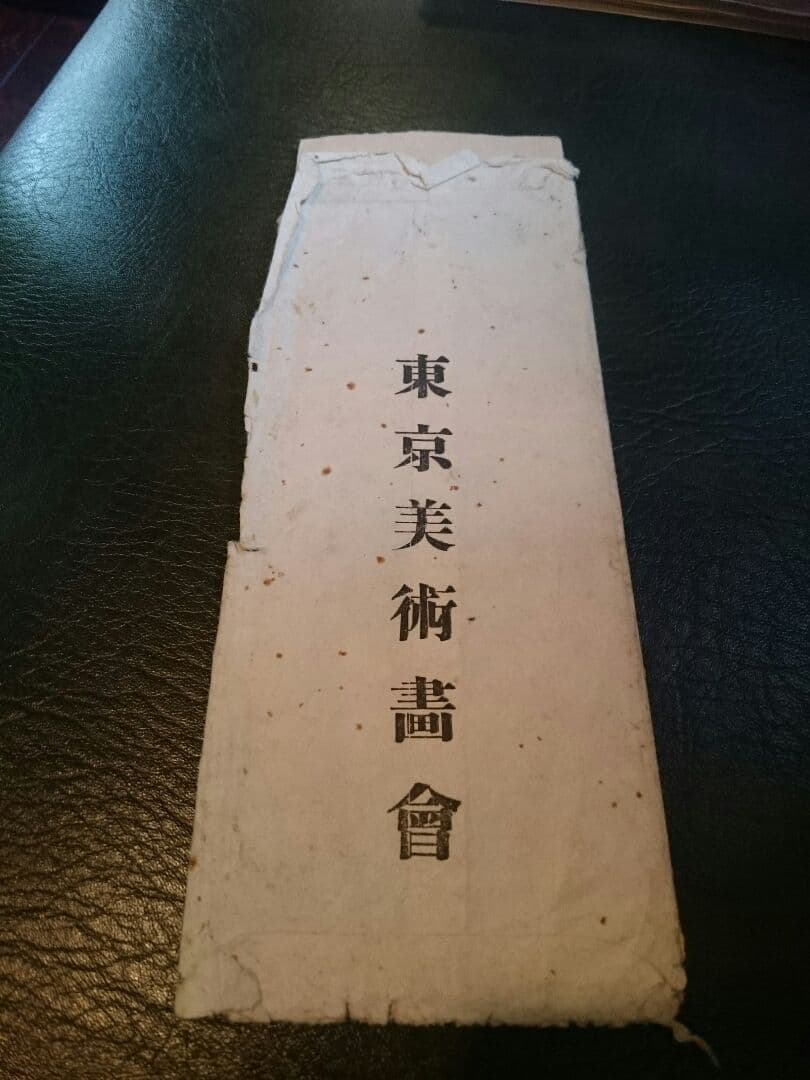 東京美術畫會